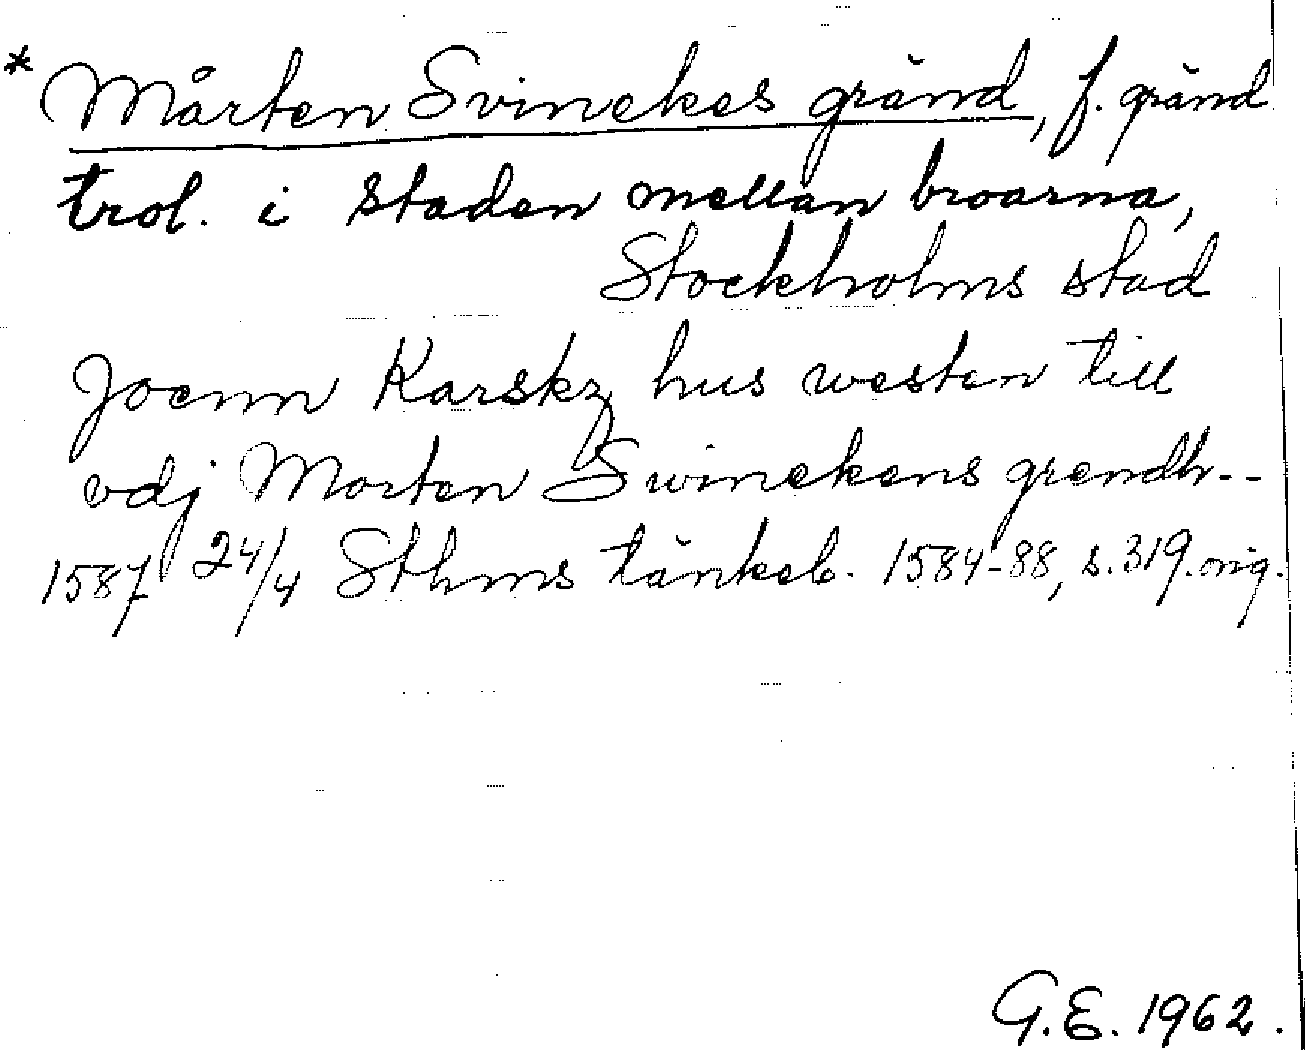 * Mårten Svinekes gränd, f. gränd
trol. i staden mellan broarna,
Stockholms stad
Joenn Karskz hus westen till
vdj Morten Swinekens grendh--
1587 24/4 Sthms tänkeb. 1584-88, s. 319. orig.
G.E. 1962.